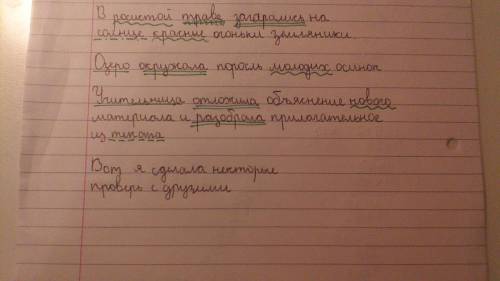 В росистой траве загорались на
солнце красные огоньки земляники.
Озеро окружала поросль молодых осинок
Учительница отложила объяснение нового
материала и разобрала прилагательное
из текста
Вот я сделала некоторые
проверь с другими